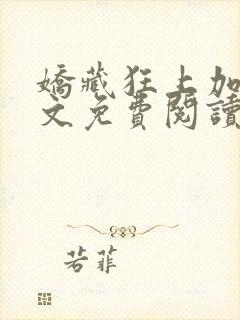 嬌藏狂上加
文免費閱讀
若菲